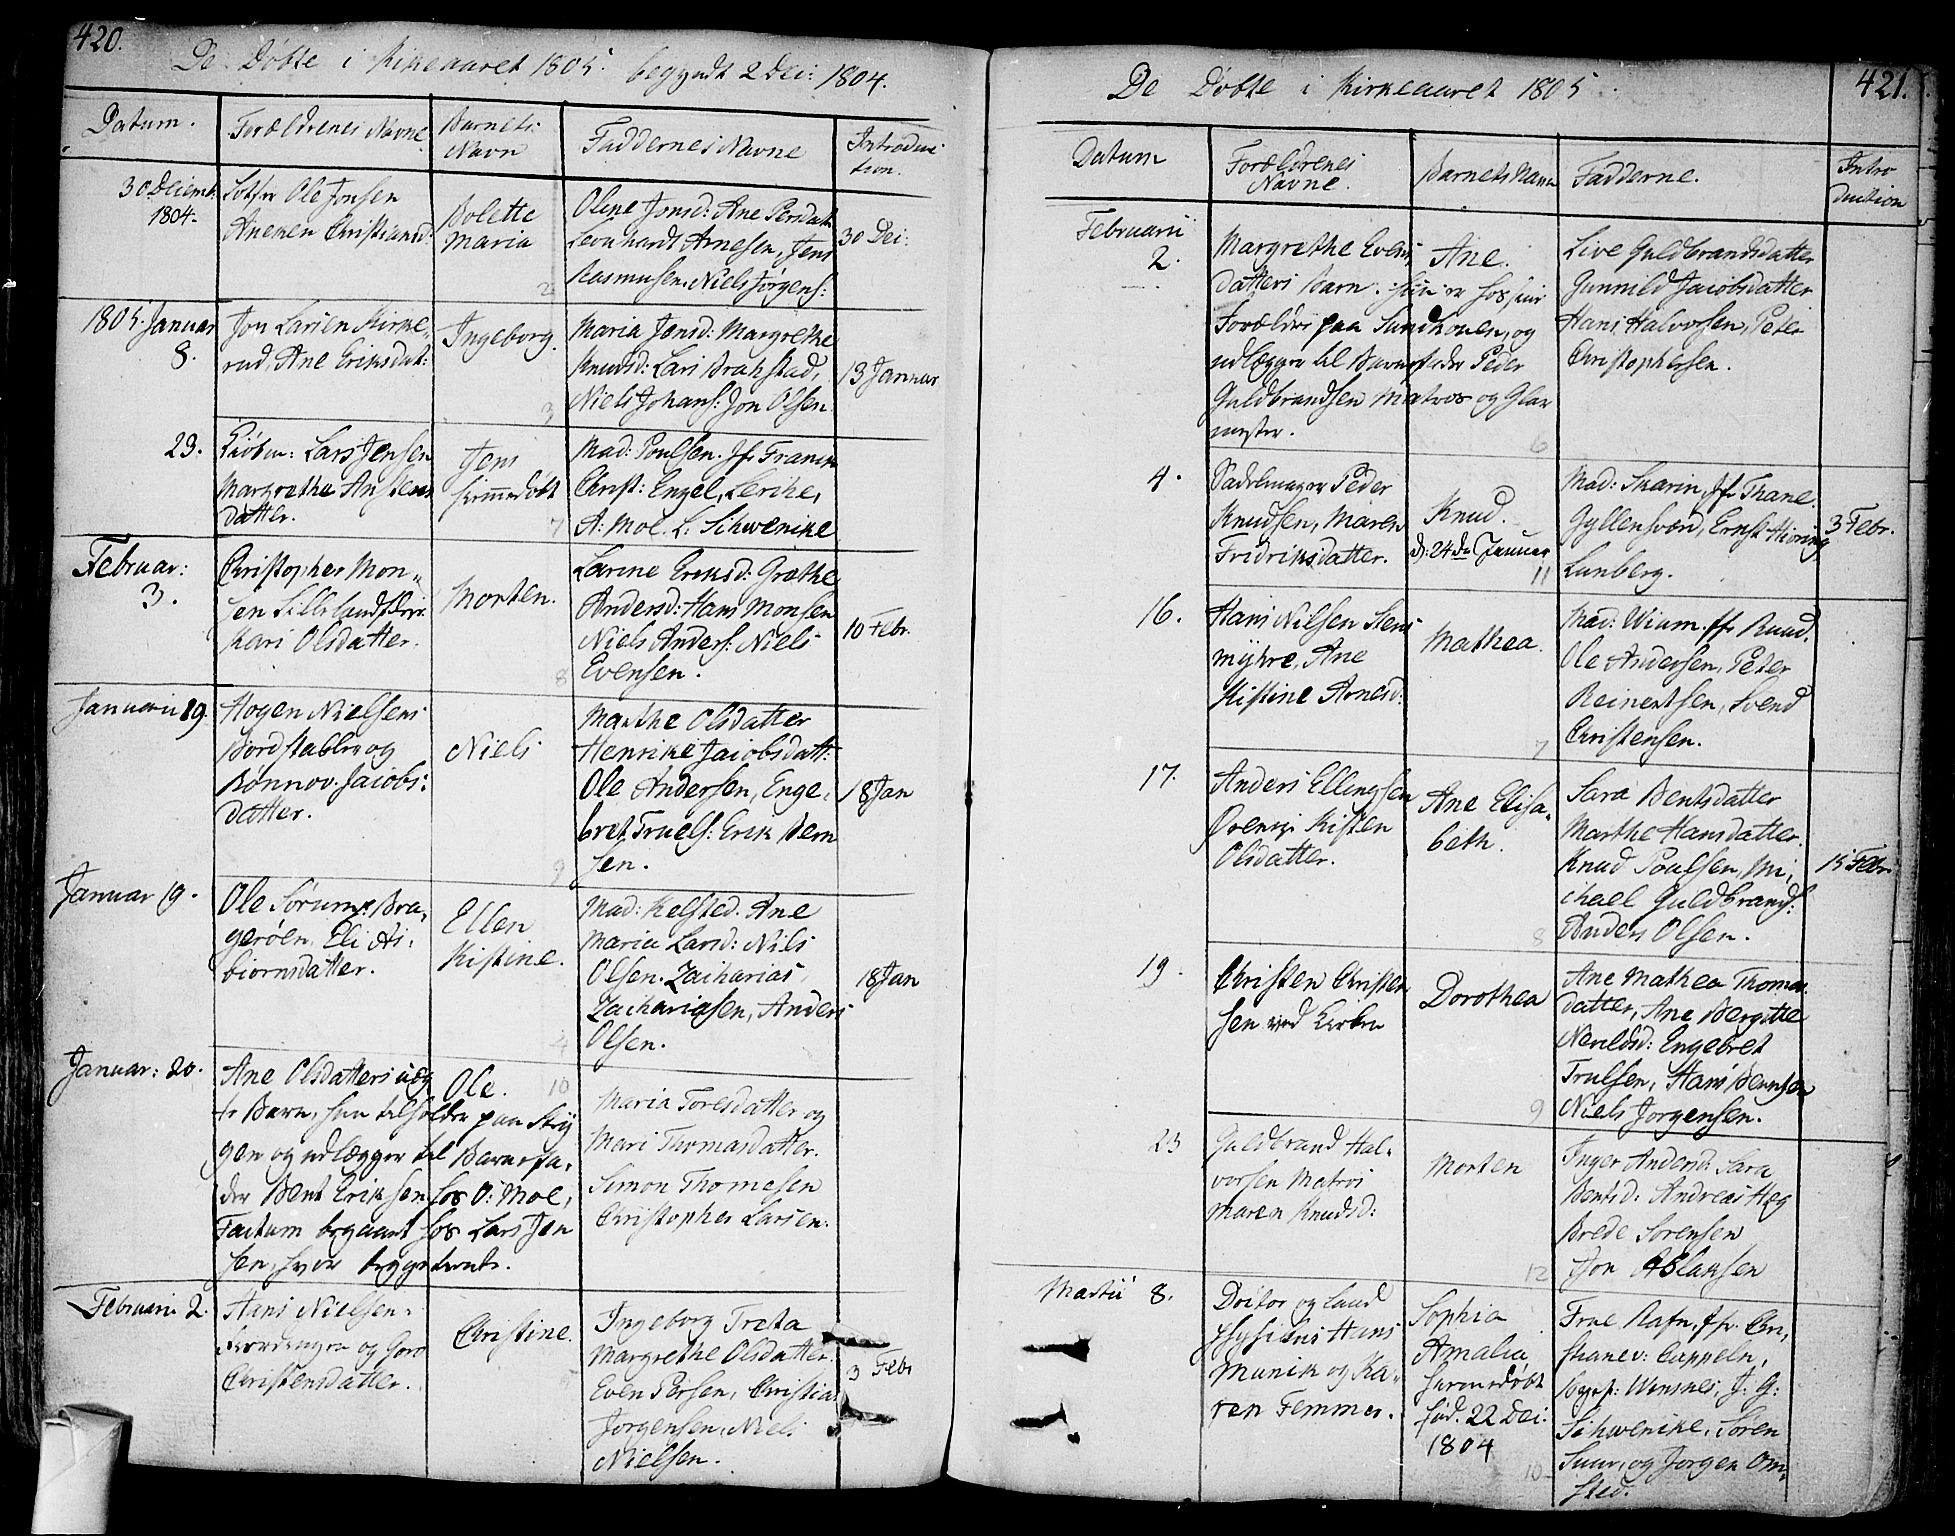 420.
De Døbte i Kirkeaaret 1805. begyndt 2 Dec: 1804.
Datum.
Forældrenes Navne
Barnets
Navn
Faddernes Navne
Introduc
tion.
30 Decemb:
1804.
Ole Jonsen
Anemen Christiansd:
Bolette
Maria
2
Oline Jonsd: Ane Persdatt
Leonhardt Arnesen, Jens
Rasmusen, Niels Jørgens:
30 Dec:
1805. Januar
8.
Jon Larsen Kirke,
rud, Ane Eriksdat:
Ingeborg.
3
Maria Jonsd: Margrethe
Knudsd: Lars Brakstad,
Niels Johans: Jon Olsen
13 Januar
23.
Lars Jensen
Margrethe Anstens
datter.
Jens
hiemmedøbt
7
Mad: Poulsen. Jfr Franck
Christ: Engel, Lerche,
A: Moe. L: Schwenike
Februar:
3.
Christopher Mon,,
sen
Kari Olsdatter.
Morten.
8
Larine Eriksd: Grethe
Andersd: Hans Monsen
Niels Anders: Niels
Evensen.
10 Febr.
Januarii 19.
Hogen Nielsens
Bordstabler og
Rønnov Jacobs:
datter.
Niels
9
Marthe Olsdatter
Henrike Jacobsdatt:
Ole Andersen, Enge,
bret Truels: Erik Bern
sen.
18 Jan
Januar 19.
Ole Sørum, Bra,
gerøen, Eli As,
biornsdatter.
Ellen
Kistine.
4
Mad: Kelsted. Ane
Maria Larsd: Niels
Olsen. Zacharias
Zachariasen, Anders
Olsen.
18 Jan
Januar: 20.
Ane Olsdatters uæg
te Barn, hun tilholder paa Stry
gen og udlægger til Barnefa,
der Bent Eriksen hos O: Moe,
Factum begaaet hos Lars Jen
sen, hvor begge tiente.
Ole.
10
Maria Toresdatter og
Mari Thomasdatter.
Simon Thomesen
Christopher Larsen.
Februarii 2.
Hans Nielsen
og Goro
Christensdatter.
Christine.
Ingeborg Treta
Margrethe Olsdatter.
Even Persen, Christian
Jørgensen, Niels
Nielsen.
3 Febr
421.
De Døbte i Kirkeaaret 1805.
Datum
Forældrenes
Navne.
Barnets Navn
Fadderne.
Intro
duction
Februarii
2.
Margrethe Evens
datters Barn. hun er hos sine
Forældre paa Landhouen, og
udlægger til Barnefader Peder
Guldbrandsen Matros og Glar
mester.
Ane.
6
Live Guldbrandsdatter
Gunnild Jacobsdatter
Hans Halvorsen, Peter
Christophersen.
4.
Sadelmager Peder
Knudsen, Maren
Fridriksdatter.
Knud.
d: 24de Januar
11
Mad: Skarin, Jfr Thane.
Gyllensværd, Ernst Hioring
Lunberg.
3 Febr.
16.
Hans Nilsen Stens
myhre, Ane
Kistine Arnesd:
Mathea.
7
Mad: Wium. Jfr Ruud.
Ole Andersen, Peter
Reinertsen, Svend
Christensen.
17.
Anders Ellingsen
Kisten
Olsdatter.
Ane Elisa,
beth.
8
Sara Bentsdatter
Marthe Hansdatter
Knud Poulsen, Mi,
chael Guldbrands:
Anders Olsen.
15 Febr
19.
Christen Christen
sen ved Kirken
Dorothea
9
Ane Mathea Thomas
datter, Ane Bergitte
Nerildsd: Engebret
Trulsen, Hans Berntsen
Niels Jorgensen.
23
Guldbrand Hal,
vorsen Matros
Maren Knudsd:
Morten
12
Inger Andersd: Sara
Bentsd: Andreas Hæg
Brede Sorensen
Jon Aslaksen
Martii 8.
Doctor og Land
physicus Hans
Munik og Ka,
ren Femmer.
Sophia
Amalia
hiemmedøbt
fød. 22 Dec:
1804
10
Frue Rafn, Jfr Chri,
stiane v: Cappeln,
J: G:
Schwenike, Søren
Suur, og Jorgen Om,
sted.